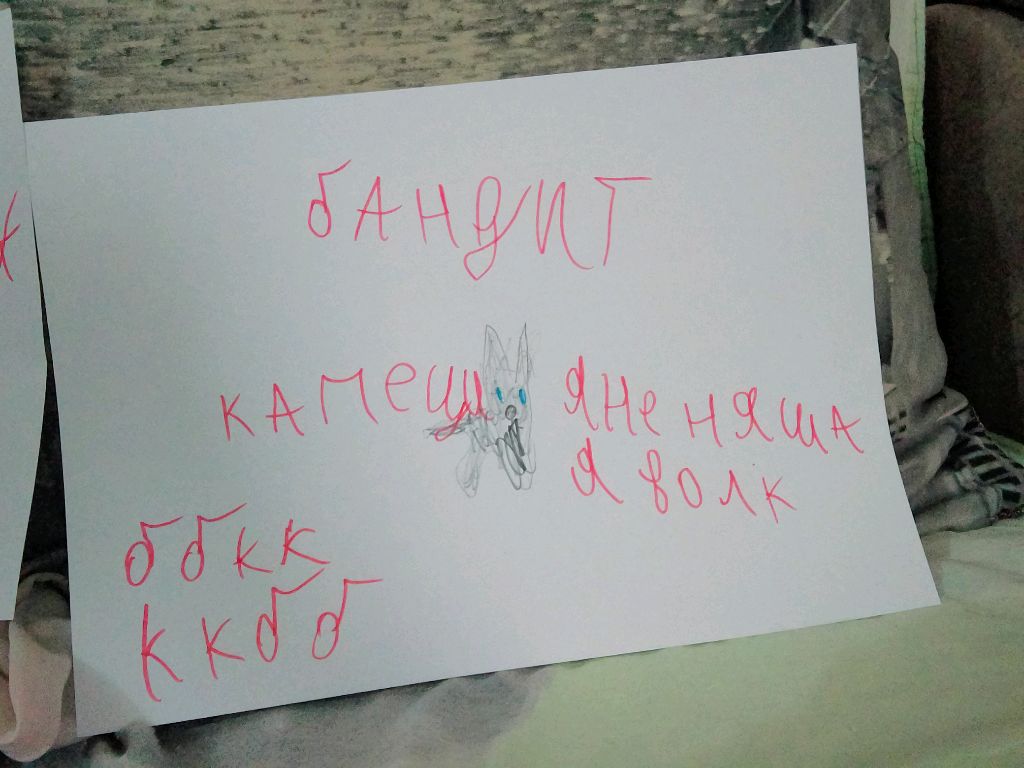 бАНдИТ
КАМеЩ
Я Не НЯША
Я ВОЛК
ббкк
ккбб